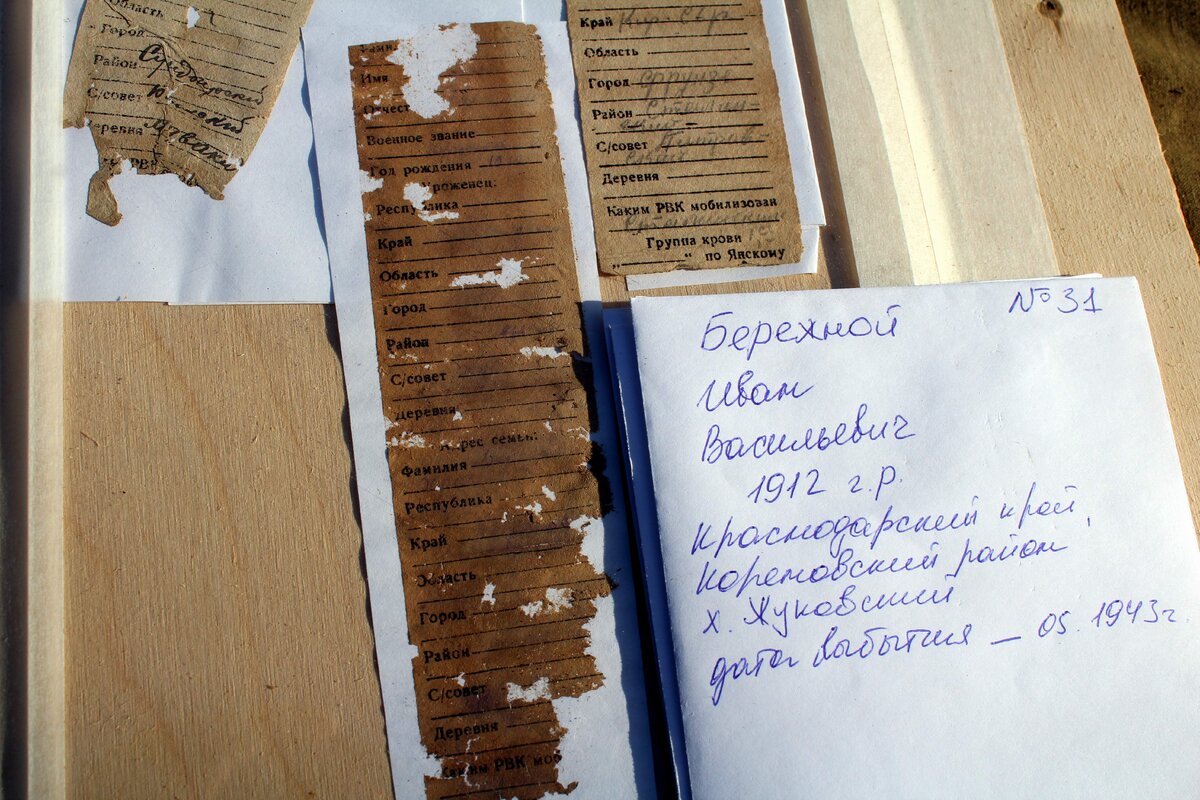 Область
Город
Район
С/совет
еревня
РВК
Имя
Отчест
Военное звание
Год рождения
Уроженец:
Республика
Край
Область
Город
Район
С/совет
Деревня
Адрес семьи:
Фамилия
Республика
Край
Область
Город
Район
С/совет
Деревня
Каким РВК моб
Край Кир. ССР
Область
Город Фрунзе
Район
С/совет
Деревня
Каким РВК мобилизован
Группа крови
„ “ по Янскому
№ 31
Бережной
Иван
Васильевич
1912 г.р.
Краснодарский край,
Кореновский район
х. Жуковский
дата выбытия – 05.1943г.